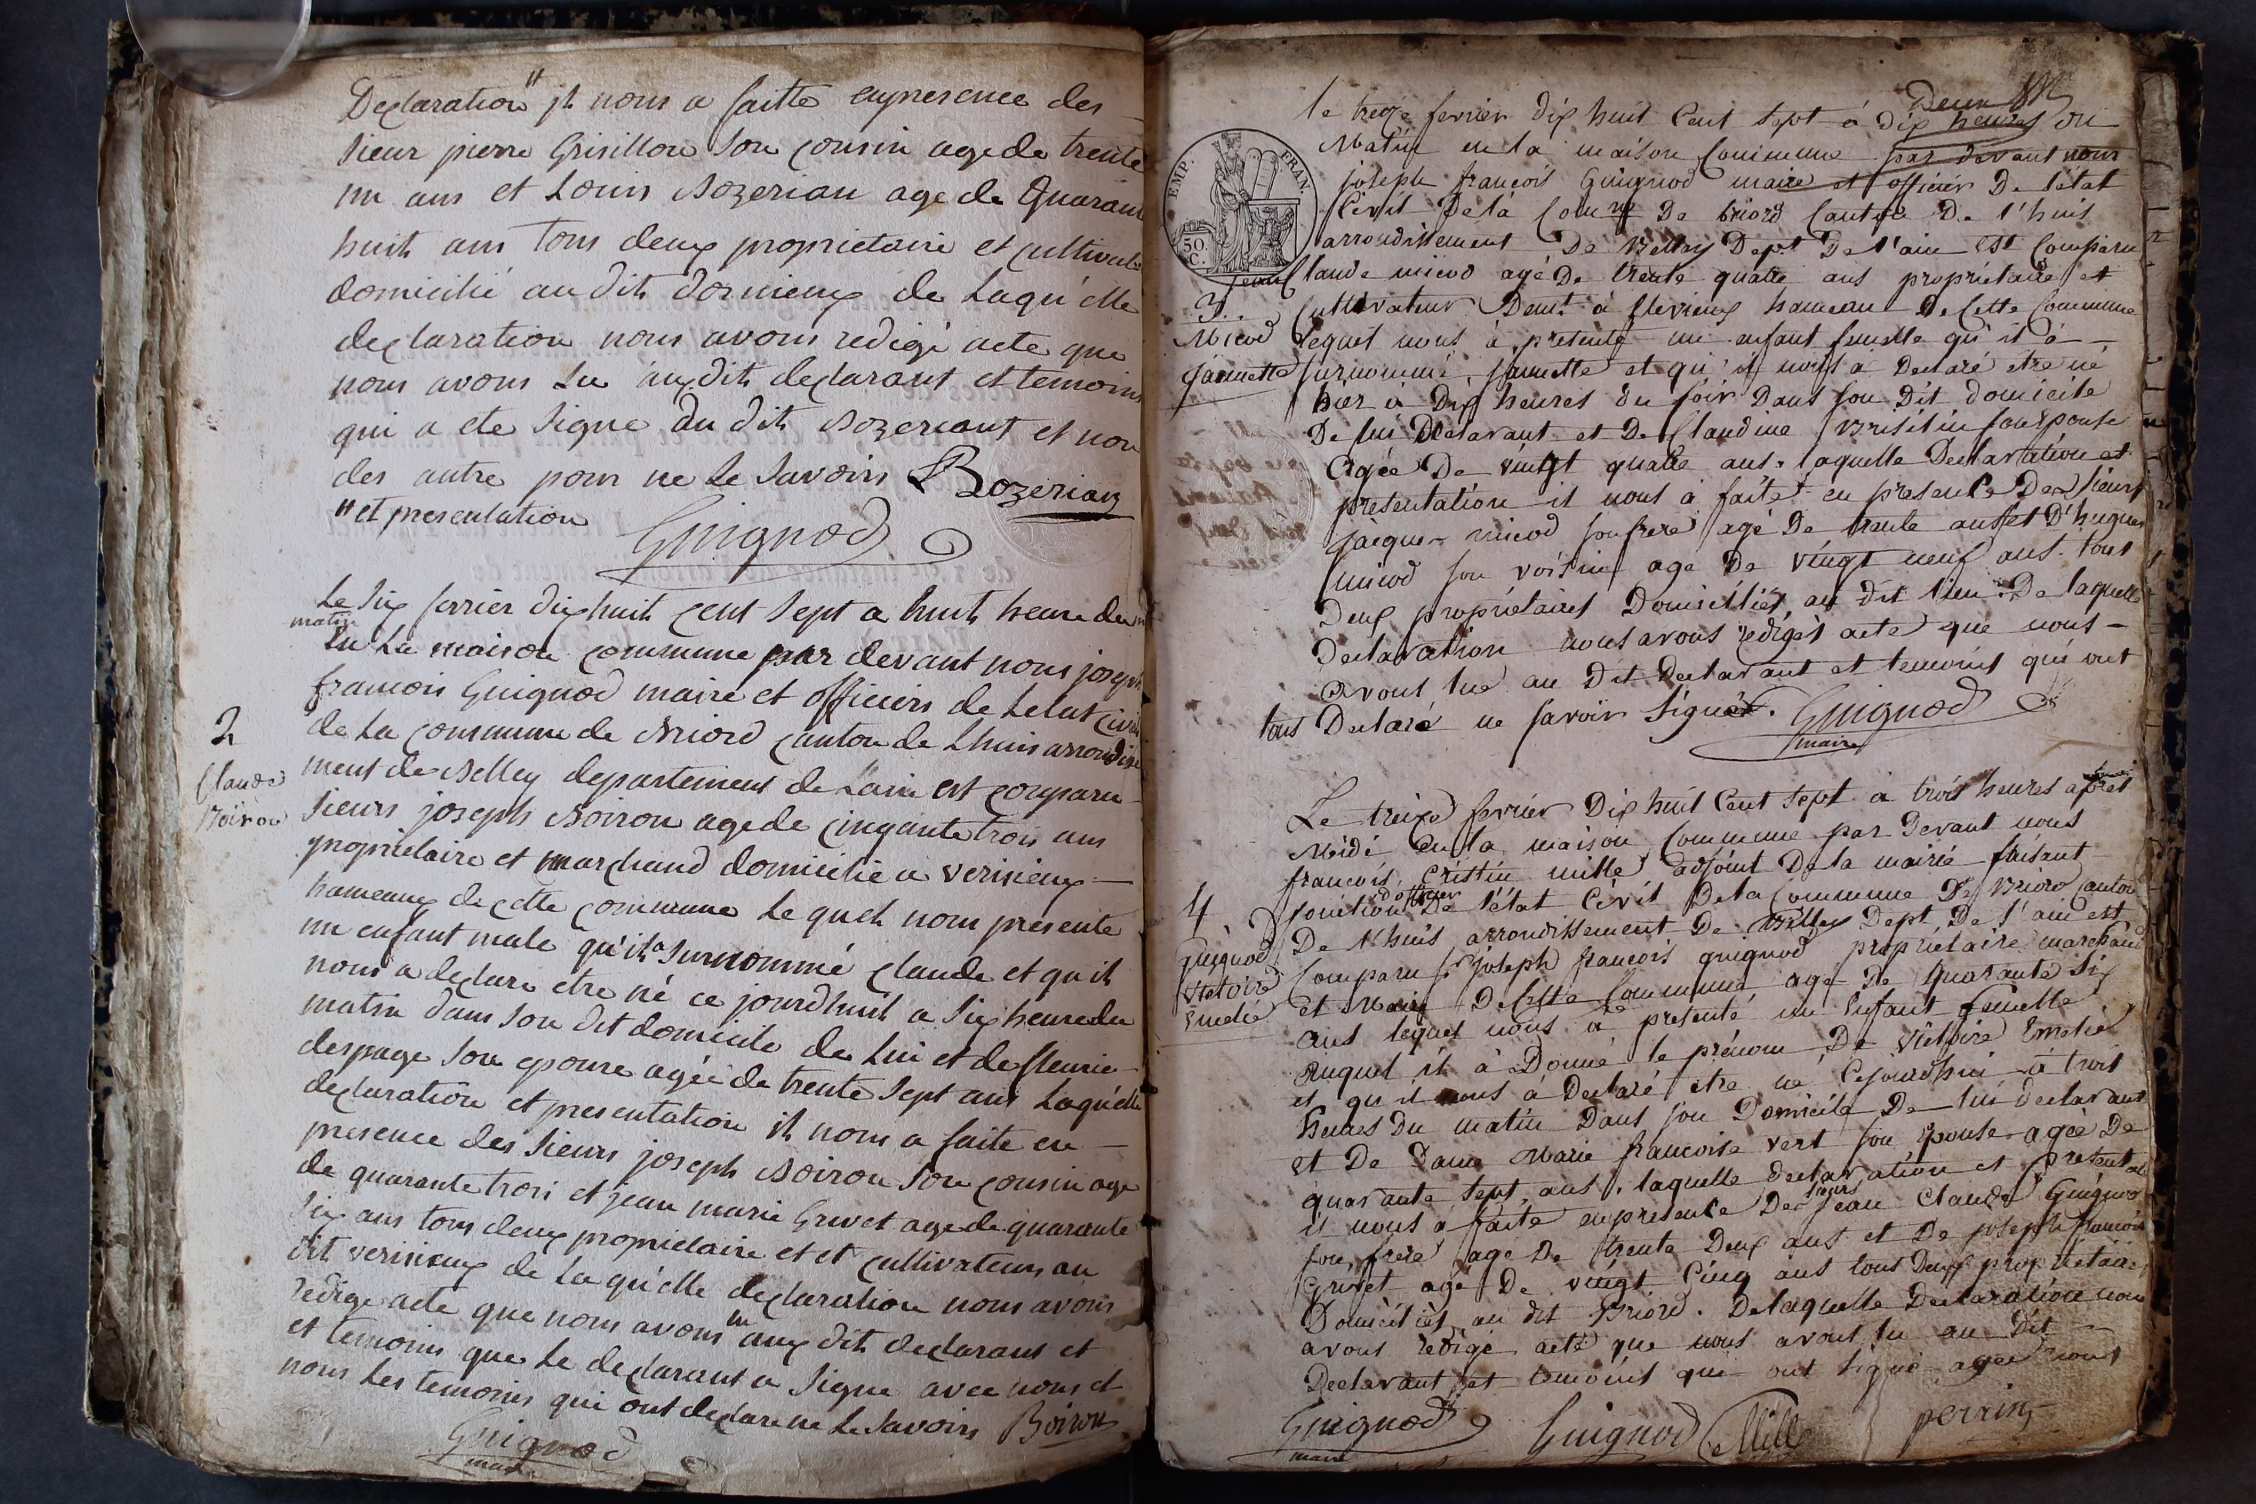 Declaration " jl nous a faitte enpresence des
sieur pierre Grisillon son cousin age de trente
un ans et Louis Bozerian age de Quarante
huit ans tous deux proprietaire et cultivate
domicilié au dit dornieux de Laqu'elle
declaration nous avons redigé acte que
nous avons Lu au dit declarant et temoins
qui a ete signe du dit Bozeriant et non
des autre pour ne le savoirs LBozerian
" et presentation
Guignod
Le six ferrier dix huit cent sept a huit heure du
matin
En La maison commune par devant nous joseph
francois Guignod maire et officiers de Letat civil
2
de La commune de Briord canton de Lhuis arrondisse
Claude
Boiron
ment de Belley departement de Lain est comparu
sieurs joseph Boiron age de cinqante trois ans
proprietaire et marchand domicilie a verisieux
hameaux de cette commune Le quel nous presente
un enfant male qu'il a surnommé claude et qu il
nous a declare etre né ce jourdhuit a six heure du
matin dans son dit domicile de Lui et de fleurie
despage son epouse agée de trente sept ans Laqu'elle
declaration et presentation il nous a faite en
presence des sieurs joseph Boiron son cousin age
de quarante trois et jean marie Grivet age de quarante
six ans tous deux proprietaire et et cultivateurs au
dit verisieux de La qu'elle declaration nous avons
redige acte que nous avons lu aux dit declarant et
et temoins que Le declarant a signe avec nous et
nous Les temoins qui ont declare ne Le savoirs Boiron
Guignod
maire
Deux
le treize fevrier dix huit Cent sept à dix heures du
Matin en la maison Commune par devant nous
joseph françois Guignod maire et officier De l'état
EMP. FRAN.
50. C.
Civil De la Comne De briord Canton De l'huis
arrondissement De Belley Dept De l'ain est Comparu
jean Claude micod agé De trente quatre ans propriétaire et
3.
Cultivateur Demt à flevieux hameau De Cette Commune
Micod
Lequel nous à présenté un enfant femelle qu'il à
jannette
surnommé jannette et qu'il nous à Declaré etre né
hier à Dix heures du soir Dans son Dit domicile
De lui Déclarant et De Claudine Brisitin son Epouse
Agée De vingt quatre ans. laquelle Declaration et
présentation il nous à faite en presence Des Sieurs
jacques micod son frere agé De trente ans et D'hugues
micod son voisin age De vingt neuf ans tous
Deux propriétaires Domiciliés au dit lieu. De laquelle
Déclaration nous avons rédigés acte que nous
avons lue au Dit Declarant et temoins qui ont
tous Declaré ne savoir signér. Guignod
maire
Le treize fevrier Dix huit Cent sept à trois heures après
Midi En la maison Commune par Devant nous
françois Cristin mille adjoint De la mairie faisant
fonction d'officier De l'état Civil De la Commune De Briord Canton
4
De Lhuis arrondissement De Belley Dept De l'ain est
Guignod
Victoire
Emelie
Comparu sr joseph françois guignod propriétaire marchand
et Maire De Cette Commune age De quarante six
ans lequel nous à présenté un Enfant femelle
Auquel il à Donné le prénom De Victoire Emelie
et qu'il nous à Declaré etre né Cejourdhui à trois
heures Du matin Dans son Domicile De lui declarant
et De Dame Marie francoise vert son Epouse agée De
quarante sept ans. laquelle declaration et presentati
il nous à faite en presence Des Sieurs jean Claude Guignod
son frere age De trente Deux ans et De joseph françois
Grivet agé De vingt Cinq ans tous Deux propriétaires
Domiciliés au dit Briord. De laquelle Declaration nous
avons rédigé acte que nous avons lu au Dit
Declarant et temoins qui ont signé avec nous
Guignod
maire
Guignod
Mille
perrin